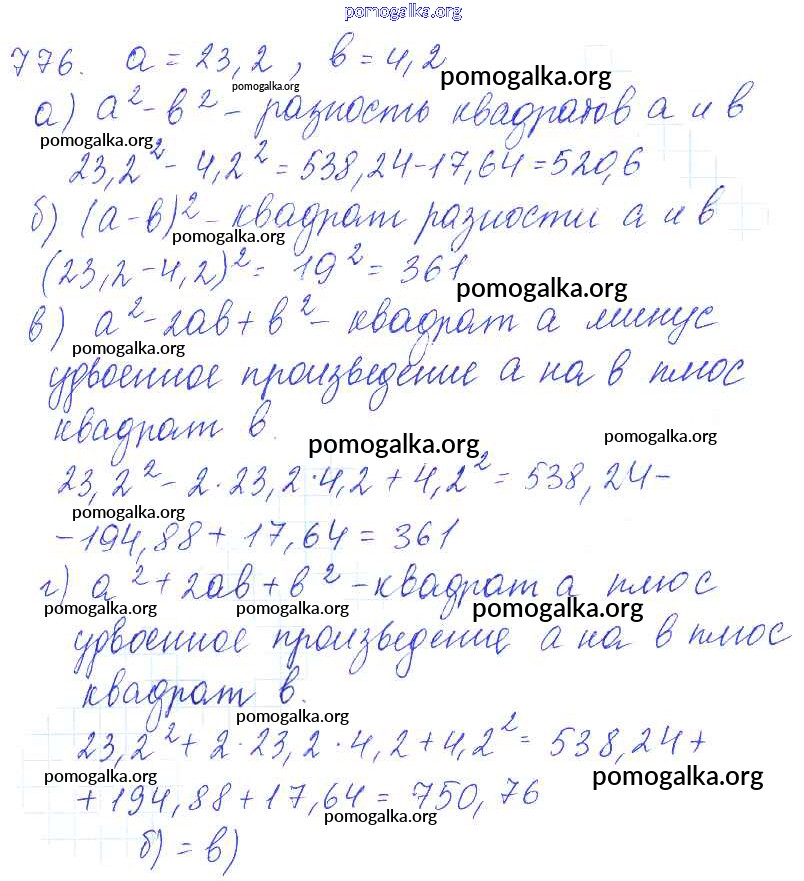 pomogalka.org
776. a = 23,2 , в = 4,2
pomogalka.org
pomogalka.org
а) a² - в² - разность квадратов а и в
pomogalka.org
23,2² - 4,2² = 538,24 - 17,64 = 520,6
б) (а - в)² - квадрат разности а и в
pomogalka.org
(23,2 - 4,2)² = 19² = 361
pomogalka.org
в) a² - 2ab + в² - квадрат а минус
pomogalka.org
удвоенное произведение а на в плюс
квадрат в.
pomogalka.org
pomogalka.org
23,2² - 2 · 23,2 · 4,2 + 4,2² = 538,24 -
pomogalka.org
- 194,88 + 17,64 = 361
г) a² + 2ab + в² - квадрат а плюс
pomogalka.org pomogalka.org pomogalka.org
удвоенное произведение а на в плюс
квадрат в.
pomogalka.org
23,2² + 2 · 23,2 · 4,2 + 4,2² = 538,24 +
pomogalka.org pomogalka.org
+ 194,88 + 17,64 = 750,76
pomogalka.org
б) = в)